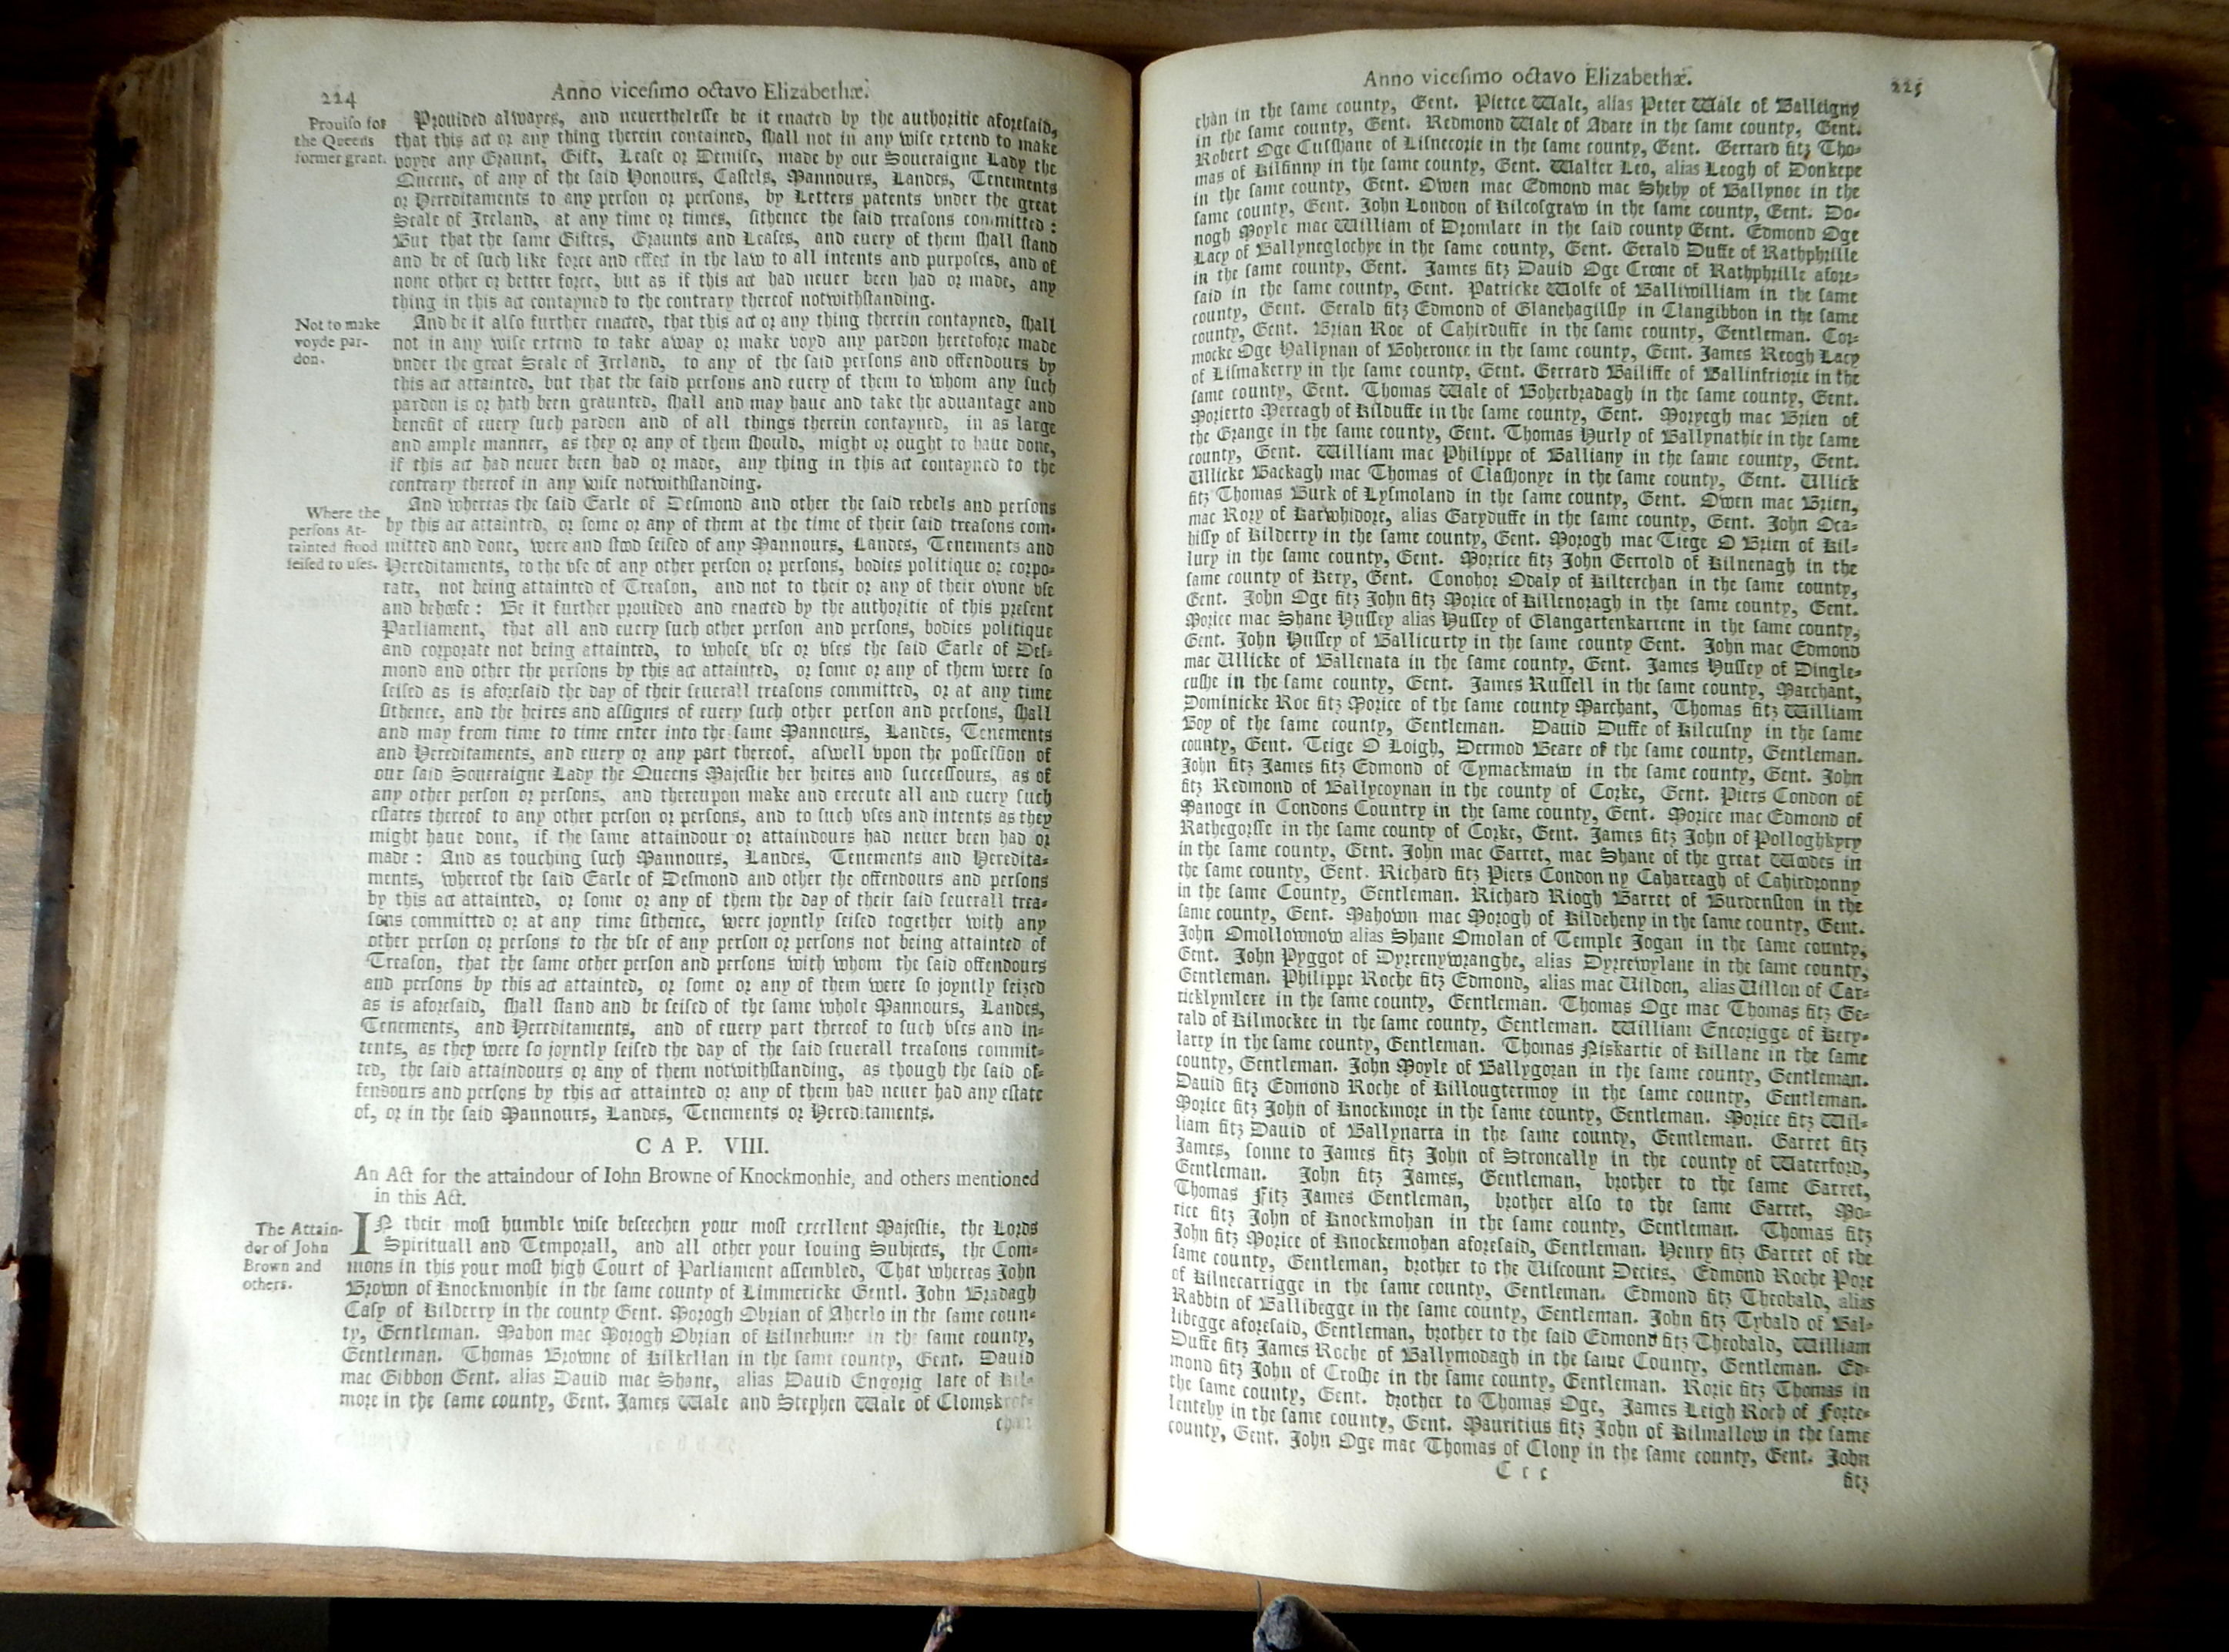 224
Anno vicesimo octavo Elizabethæ.
Prouiso for
the Queens
former grant.
Prouided alwayes, and neuerthelesse be it enacted by the authoritie aforesaid,
that this act or any thing therein contained, shall not in any wise extend to make
voyde any Graunt, Gift, Lease or Demise, made by our Soueraigne Lady the
Queene, of any of the said Honours, Castels, Mannours, Landes, Tenements
or Hereditaments to any person or persons, by Letters patents vnder the great
Seale of Ireland, at any time or times, sithence the said treasons committed :
But that the same Giftes, Graunts and Leases, and euery of them shall stand
and be of such like force and effect in the law to all intents and purposes, and of
none other or better force, but as if this act had neuer been had or made, any
thing in this act contayned to the contrary thereof notwithstanding.
Not to make
voyde par-
don.
And be it also further enacted, that this act or any thing therein contayned, shall
not in any wise extend to take away or make voyd any pardon heretofore made
vnder the great Seale of Ireland, to any of the said persons and offendours by
this act attainted, but that the said persons and euery of them to whom any such
pardon is or hath been graunted, shall and may haue and take the aduantage and
benefit of euery such pardon and of all things therein contayned, in as large
and ample manner, as they or any of them should, might or ought to haue done,
if this act had neuer been had or made, any thing in this act contayned to the
contrary thereof in any wise notwithstanding.
Where the
persons At-
tainted stood
seised to uses.
And whereas the said Earle of Desmond and other the said rebels and persons
by this act attainted, or some or any of them at the time of their said treasons com-
mitted and done, were and stood seised of any Mannours, Landes, Tenements and
Hereditaments, to the vse of any other person or persons, bodies politique or corpo-
rate, not being attainted of Treason, and not to their or any of their owne vse
and behoofe : Be it further prouided and enacted by the authoritie of this present
Parliament, that all and euery such other person and persons, bodies politique
and corporate not being attainted, to whose vse or vses the said Earle of Des-
mond and other the persons by this act attainted, or some or any of them were so
seised as is aforesaid the day of their seuerall treasons committed, or at any time
sithence, and the heires and assignes of euery such other person and persons, shall
and may from time to time enter into the same Mannours, Landes, Tenements
and Hereditaments, and euery or any part thereof, aswell vpon the possession of
our said Soueraigne Lady the Queens Majestie her heires and successours, as of
any other person or persons, and thereupon make and execute all and euery such
estates thereof to any other person or persons, and to such vses and intents as they
might haue done, if the same attaindour or attaindours had neuer been had or
made : And as touching such Mannours, Landes, Tenements and Heredita-
ments, whereof the said Earle of Desmond and other the offendours and persons
by this act attainted, or some or any of them the day of their said seuerall trea-
sons committed or at any time sithence, were joyntly seised together with any
other person or persons to the vse of any person or persons not being attainted of
Treason, that the same other person and persons with whom the said offendours
and persons by this act attainted, or some or any of them were so joyntly seized
as is aforesaid, shall stand and be seised of the same whole Mannours, Landes,
Tenements, and Hereditaments, and of euery part thereof to such vses and in-
tents, as they were so joyntly seised the day of the said seuerall treasons commit-
ted, the said attaindours or any of them notwithstanding, as though the said of-
fendours and persons by this act attainted or any of them had neuer had any estate
of, or in the said Mannours, Landes, Tenements or Hereditaments.
CAP. VIII.
An Act for the attaindour of Iohn Browne of Knockmonhie, and others mentioned
in this Act.
The Attain-
der of John
Brown and
others.
IN their most humble wise beseechen your most excellent Majestie, the Lords
Spirituall and Temporall, and all other your louing Subjects, the Com-
mons in this your most high Court of Parliament assembled, That whereas John
Brown of Knockmonhie in the same county of Limmericke Gentl. John Bradagh
Casy of Kilderry in the county Gent. Morogh Obrian of Aherlo in the same coun-
ty, Gentleman. Mahon mac Morogh Obrian of Kilnehume in the same county,
Gentleman. Thomas Browne of Kilkellan in the same county, Gent. Dauid
mac Gibbon Gent. alias Dauid mac Shane, alias Dauid Engorig late of Kil-
more in the same county, Gent. James Wale and Stephen Wale of Clomskrot-
chan
Anno vicesimo octavo Elizabethæ.
225
chan in the same county, Gent. Pierce Wale, alias Peter Wale of Balleigny
in the same county, Gent. Redmond Wale of Adare in the same county, Gent.
Robert Oge Cusshane of Lisnecorie in the same county, Gent. Gerrard fitz Tho-
mas of Kilfinny in the same county, Gent. Walter Leo, alias Leogh of Donkepe
in the same county, Gent. Owen mac Edmond mac Shehy of Ballynoe in the
same county, Gent. John London of Kilcosgraw in the same county, Gent. Do-
nogh Moyle mac William of Dromlare in the said county Gent. Edmond Oge
Lacy of Ballyneglochye in the same county, Gent. Gerald Duffe of Rathphrille
in the same county, Gent. James fitz Dauid Oge Crone of Rathphrille afore-
said in the same county, Gent. Patricke Wolfe of Balliwilliam in the same
county, Gent. Gerald fitz Edmond of Glanehagilsy in Clangibbon in the same
county, Gent. Brian Roe of Cahirduffe in the same county, Gentleman. Cor-
mocke Oge Hallynan of Boheronee in the same county, Gent. James Reogh Lacy
of Lismakerry in the same county, Gent. Gerrard Bailiffe of Ballinfriorie in the
same county, Gent. Thomas Wale of Boherbradagh in the same county, Gent.
Morierto Mereagh of Kilduffe in the same county, Gent. Moryegh mac Brien of
the Grange in the same county, Gent. Thomas Hurly of Ballynathie in the same
county, Gent. William mac Philippe of Balliany in the same county, Gent.
Ullicke Backagh mac Thomas of Clashonye in the same county, Gent. Ullick
fitz Thomas Burk of Lysmoland in the same county, Gent. Owen mac Brien,
mac Rory of Karwhidore, alias Garyduffe in the same county, Gent. John Oca-
hissy of Kilderry in the same county, Gent. Morogh mac Tiege O Brien of Kil-
lury in the same county, Gent. Morrice fitz John Gerrold of Kilnenagh in the
same county of Kery, Gent. Conohor Odaly of Kilterchan in the same county,
Gent. John Oge fitz John fitz Morice of Killenoragh in the same county, Gent.
Morice mac Shane Hussey alias Hussey of Glangartenkarrene in the same county,
Gent. John Hussey of Ballicurty in the same county Gent. John mac Edmond
mac Ullicke of Ballenata in the same county, Gent. James Hussey of Dingle-
cushe in the same county, Gent. James Russell in the same county, Marchant,
Dominicke Roe fitz Morice of the same county Marchant, Thomas fitz William
Boy of the same county, Gentleman. Dauid Duffe of Kilcusny in the same
county, Gent. Teige O Loigh, Dermod Beare of the same county, Gentleman.
John fitz James fitz Edmond of Tymackmaw in the same county, Gent. John
fitz Redmond of Ballycoynan in the county of Corke, Gent. Piers Condon of
Manoge in Condons Country in the same county, Gent. Morice mac Edmond of
Rathegorsse in the same county of Corke, Gent. James fitz John of Polloghkyry
in the same county, Gent. John mac Garret, mac Shane of the great Woodes in
the same county, Gent. Richard fitz Piers Condon ny Cahareagh of Cahirdronny
in the same County, Gentleman. Richard Riogh Barret of Burdenston in the
same county, Gent. Mahown mac Morogh of Kildeheny in the same county, Gent.
John Omollownow alias Shane Omolan of Temple Jogan in the same county,
Gent. John Pyggot of Dyrrenywranghe, alias Dyrrewylane in the same county,
Gentleman. Philippe Roche fitz Edmond, alias mac Uildon, alias Uillon of Car-
ricklymlere in the same county, Gentleman. Thomas Oge mac Thomas fitz Ge-
rald of Kilmockee in the same county, Gentleman. William Encorigge of Kery-
larry in the same county, Gentleman. Thomas Niskartie of Killane in the same
county, Gentleman. John Moyle of Ballygoran in the same county, Gentleman.
Dauid fitz Edmond Roche of Killougtermoy in the same county, Gentleman.
Morice fitz John of Knockmore in the same county, Gentleman. Morice fitz Wil-
liam fitz Dauid of Ballynarra in the same county, Gentleman. Garret fitz
James, sonne to James fitz John of Stroncally in the county of Waterford,
Gentleman. John fitz James, Gentleman, brother to the same Garret,
Thomas Fitz James Gentleman, brother also to the same Garret, Mo-
rice fitz John of Knockmohan in the same county, Gentleman. Thomas fitz
John fitz Morice of Knockemohan aforesaid, Gentleman. Henry fitz Garret of the
same county, Gentleman, brother to the Uiscount Decies, Edmond Roche Pore
of Kilnecarrigge in the same county, Gentleman. Edmond fitz Theobald, alias
Rabbin of Ballibegge in the same county, Gentleman. John fitz Tybald of Bal-
libegge aforesaid, Gentleman, brother to the said Edmond fitz Theobald, William
Duffe fitz James Roche of Ballymodagh in the same County, Gentleman. Ed-
mond fitz John of Croshe in the same county, Gentleman. Rorie fitz Thomas in
the same county, Gent. brother to Thomas Oge, James Leigh Roch of Forte-
lentehy in the same county, Gent. Mauritius fitz John of Kilmallow in the same
county, Gent. John Oge mac Thomas of Clony in the same county, Gent. John
Ccc
fitz